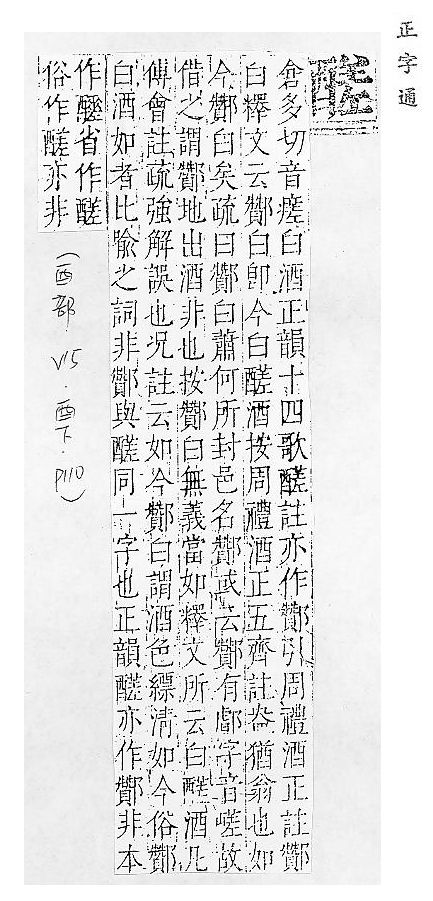 正字通
醝
倉多切音瘥白酒正韻十四歌醝註亦作酇引周禮酒正註酇
白釋文云酇白卽今白醝酒按周禮酒正五齊註盎猶翁也如
今酇白矣疏曰酇白蕭何所封邑名酇或云酇有字音嵯故
借之謂酇地出酒非也按酇白無義當如釋文所云白醝酒凡
傅會註疏強解誤也况註云如今酇白謂酒色縹清如今俗酇
白酒如者比喩之詞非酇與醝同一字也正韻醝亦作酇非本
作省作醝
俗作醝亦非
(酉部 V15.酉下.P110)